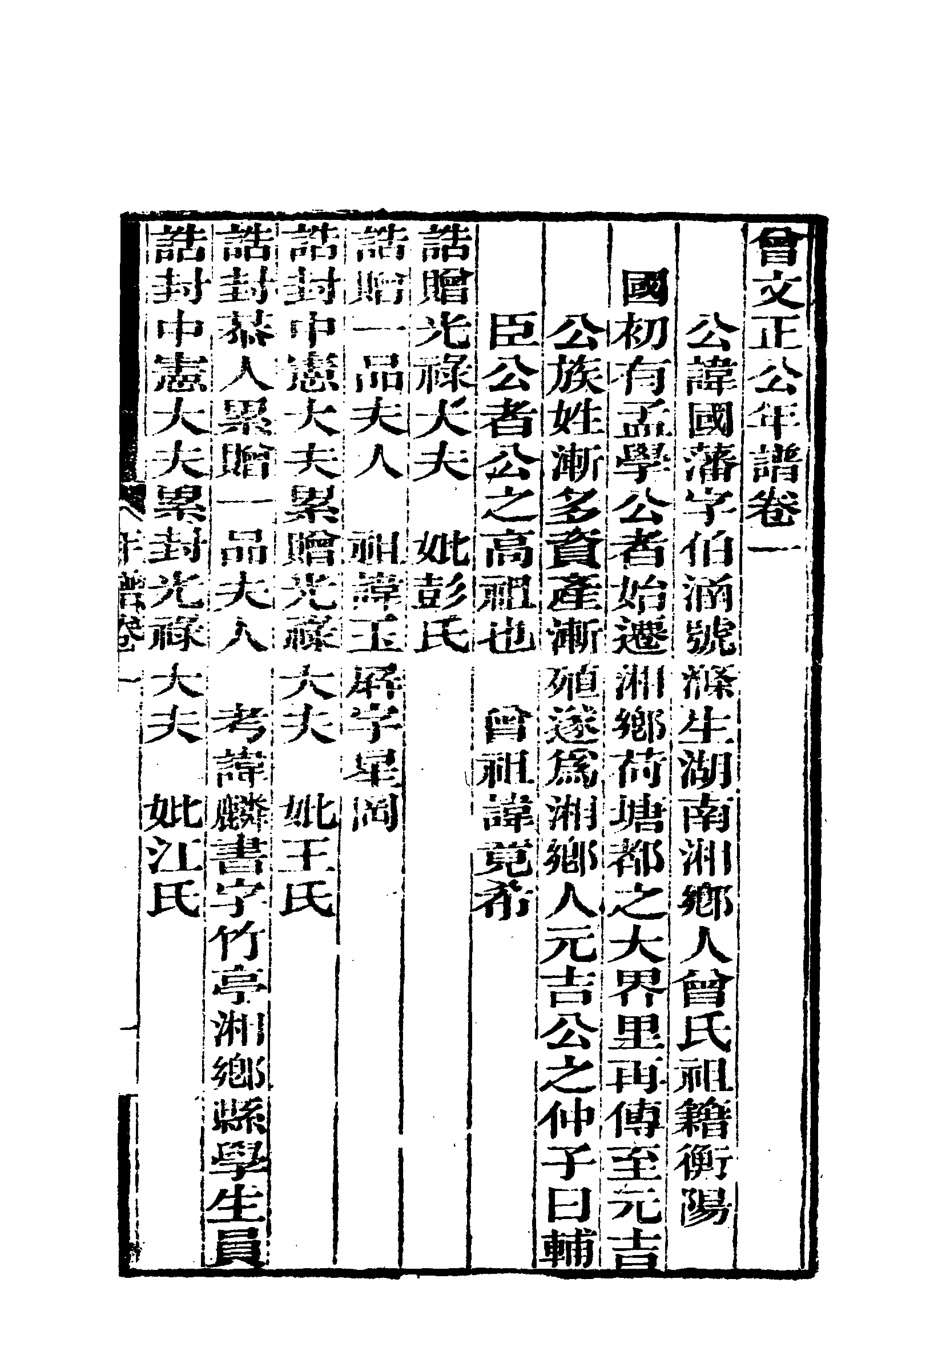 曾文正公年譜卷一
公諱國藩字伯涵號滌生湖南湘鄉人曾氏祖籍衡陽
國初有孟學公者始遷湘鄉荷塘都之大界里再傳至元吉
公族姓漸多資產漸殖遂爲湘鄉人元吉公之仲子曰輔
臣公者公之高祖也　曾祖諱竟希
誥贈光祿大夫　妣彭氏
誥贈一品夫人　祖諱玉屏字星岡
誥封中憲大夫累贈光祿大夫　妣王氏
誥封恭人累贈一品夫人　考諱麟書字竹亭湘鄉縣學生員
誥封中憲大夫累封光祿大夫　妣江氏
年譜卷一
一